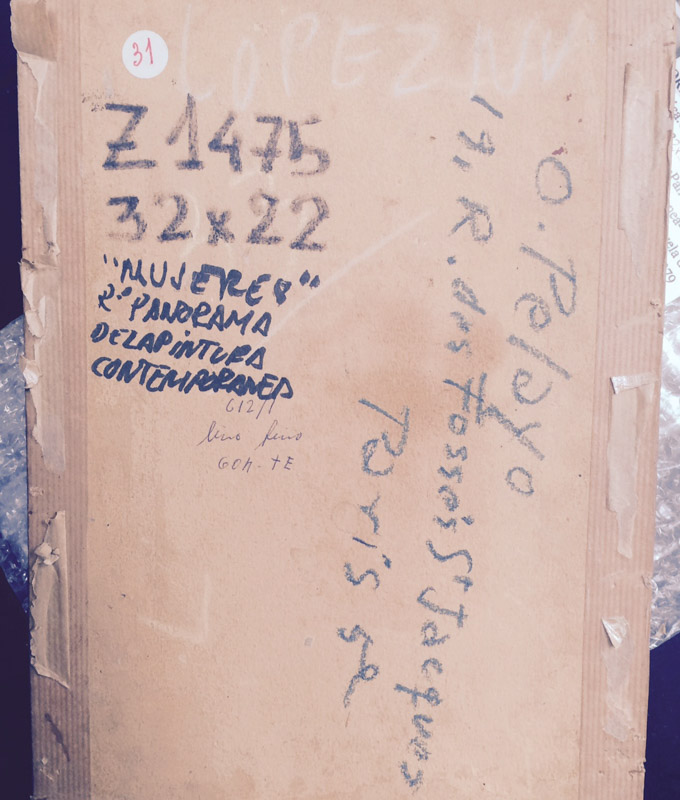 31
LOPEZ
Z1475
32x22
"MUJERES"
Rº PANORAMA
DE LA PINTURA
CONTEMPORANEA
612/1
O. Pelayo
14, R. des Fossés St Jacques
Paris 5e